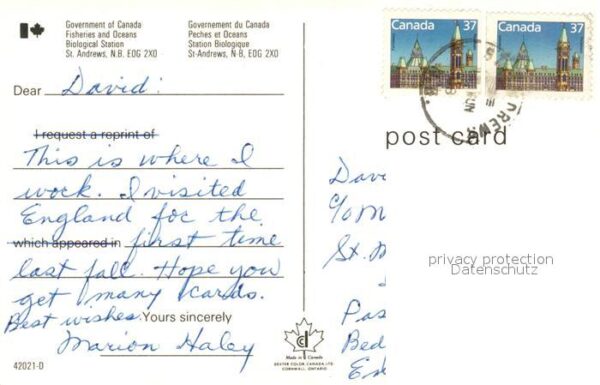 Government of Canada
Fisheries and Oceans
Biological Station
St. Andrews, N.B. E0G 2X0
Gouvernement du Canada
Peches et Oceans
Station Biologique
St-Andrews, N.B. E0G 2X0
Canada 37
Canada 37
Dear David:
post card
I request a reprint of
This is where I
work. I visited
England for the
which appeared in first time
last fall. Hope you
get many cards.
Best wishes. Yours sincerely
Marion Haley
42021-D
Made in Canada
DEXTER COLOR CANADA LTD.
CORNWALL, ONTARIO
Dav
c/o M
St. M
Pas
Bed
privacy protection
Datenschutz